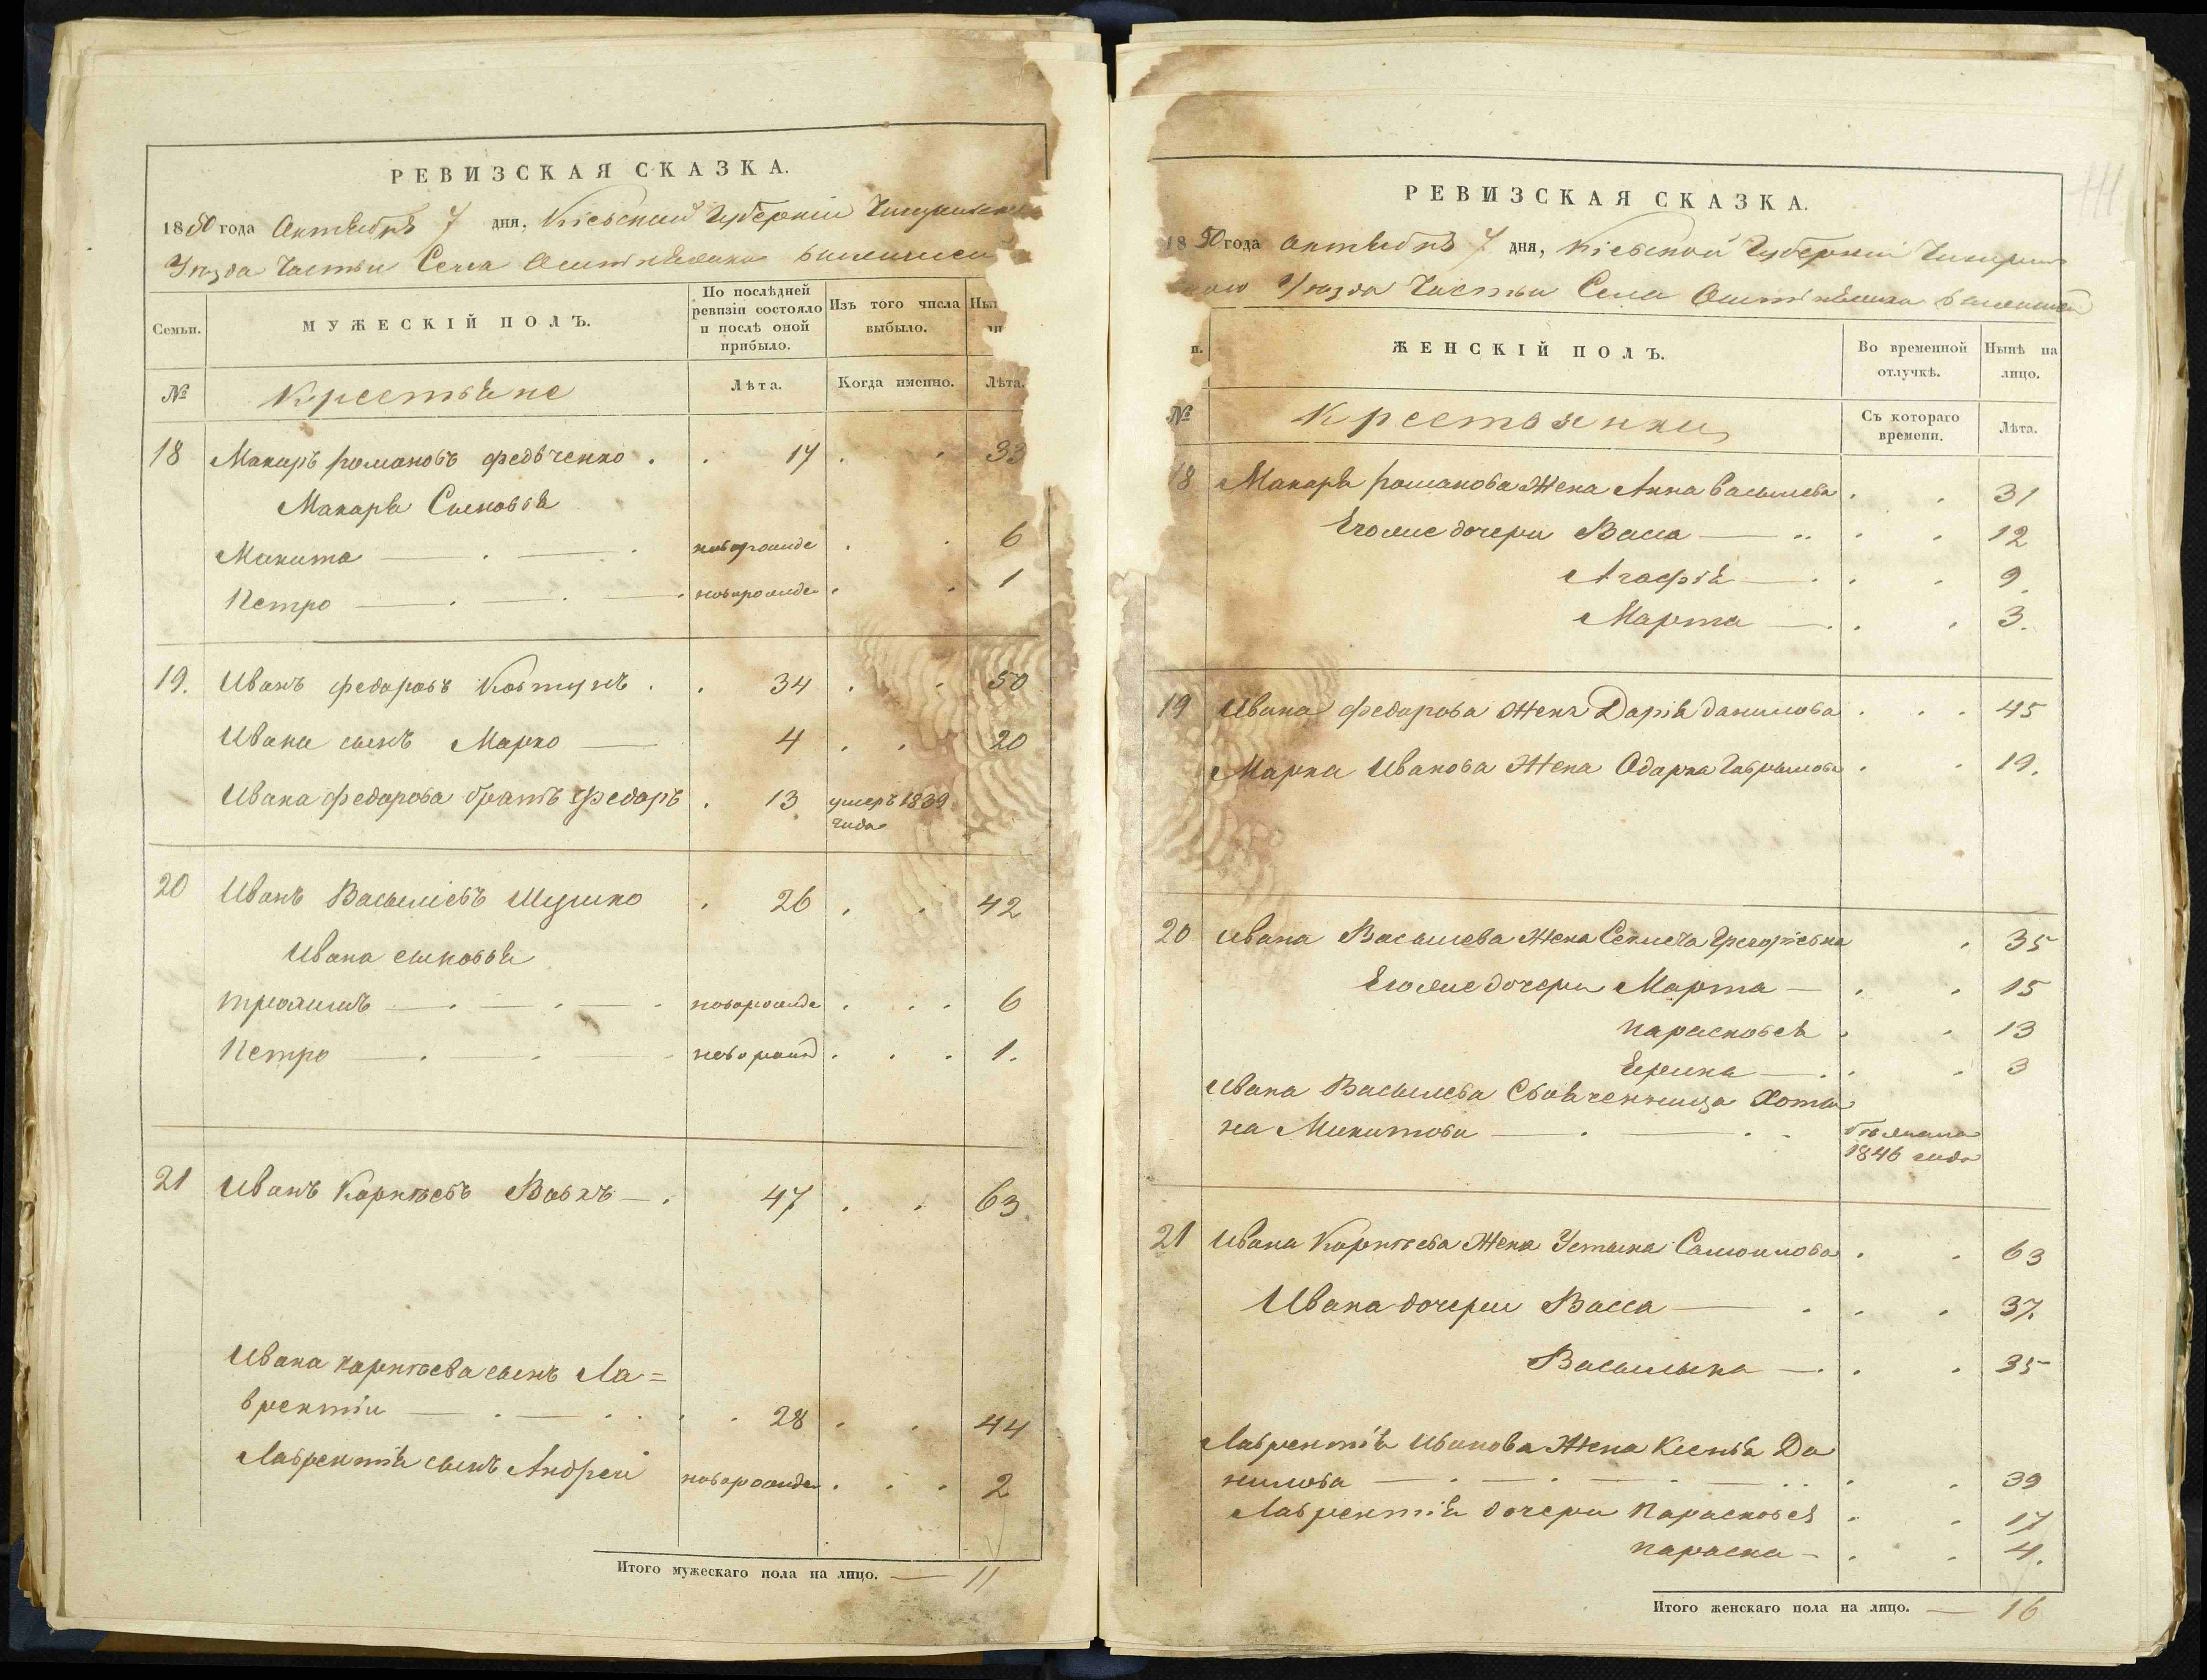 РЕВИЗСКАЯ СКАЗКА.
1850 года Октября 7 дня, Кіевской Губерніи Чигиринского
Уезда Части Села
Семьи.
МУЖЕСКІЙ ПОЛЪ.
По послѣдней ревизіи состояло и послѣ оной прибыло.
Изъ того числа выбыло.
№
Крестьяне
Лѣта.
Когда именно.
Лѣта.
18 Макаръ романовъ федченко . . 17 . . 33
Макара Сыновья
Микита — . — . новорожде . . 6
Петро — . — . — . новорожде . . 1
19. Иванъ федоровъ Ковтунъ . . 34 . . 50
Ивана сынъ Марко — 4 . . 20
Ивана федорова братъ федоръ . 13 умеръ 1839
года
20 Иванъ Васылiевъ Шушко . 26 . . 42
Ивана сыновья
трохимъ — . — . — . новорожде . . . 6
Петро — . . новорожд . . . 1.
21 Иванъ Корнѣевъ Вовкъ — . 47 . . 63
Ивана корнѣева сынъ Ла=
врентiи — . — . . . . 28 . . 44
Лаврентiя сынъ Андреи новорожде . . . 2
Итого мужескаго пола на лицо. — 11
РЕВИЗСКАЯ СКАЗКА.
1850 года октября 7 дня, Кіевской Губерніи Чигирин
ского Уезда Части Села
ЖЕНСКІЙ ПОЛЪ.
Во временной отлучкѣ.
Нынѣ на лицо.
№
Крестьянки
Съ котораго времени.
Лѣта.
18 Макара романова Жена Анна Васылева . . 31
Егоже дочери Васса — .. . . 12
Агафiя — . . . 9.
Марта — . . . 3.
19 Ивана федорова Жена Дарiя данилова . . . 45
Марка Иванова Жена Одарка Гаврылова . . 19.
20 Ивана Васылева Жена Григорiевна . 35
Егоже дочери Марта — . . 15
Парасковея . . 13
— . . . 3
Ивана Васылева Хоты
на Микитова — . — . .
1846 года
21 Ивана Корнѣева Жена Устына Самоилова . . 63
Ивана дочери Васса — . . . 37.
Васылына — . . . 35
Лаврентiя Иванова Жена Ксенiя Да
нилова — . — . — . — . . . . 39
Лаврентiя дочери Парасковея . . 17
параска — . . 4.
Итого женскаго пола на лицо. — 16